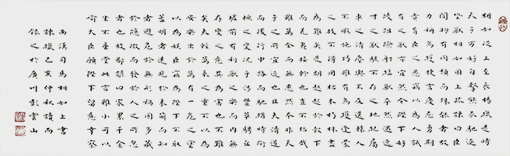 相如從上至長楊獵是時
天子方好自擊熊豕馳逐
壄獸相如因上疏諫曰臣
聞物有同類而殊能者故
力稱烏獲捷言慶忌勇期賁
育臣之愚竊以為人誠
有之獸亦宜然今陛下好
陵阻險射猛獸卒然遇逸
材之獸駭不存之地犯屬
車之清塵輿不及還轅人
不暇施巧雖有烏獲逢蒙
之技不得用枯木朽株盡
為難矣是胡越起於轂下
而羌夷接軫也豈不殆哉
雖萬全而無患然本非天
子之所宜近也且夫清道
而後行中路而馳猶時有
銜橛之變況乎涉豐草騁
丘墟前有利獸之樂而內無
存變之意其為害也不難
矣夫輕萬乘之重不以為
安樂出萬有一危之塗
以為娛臣竊為陛下不取
蓋明者遠見於未萌而知
者避危於無形禍固多藏
於隱微而發於人之所忽
者也故鄙諺曰家累千金
坐不垂堂此言雖小可以
喻大臣願陛下留意幸察
西漢司馬相如上書
諫獵己亥仲秋讀而
錄之於廣州彭雲山